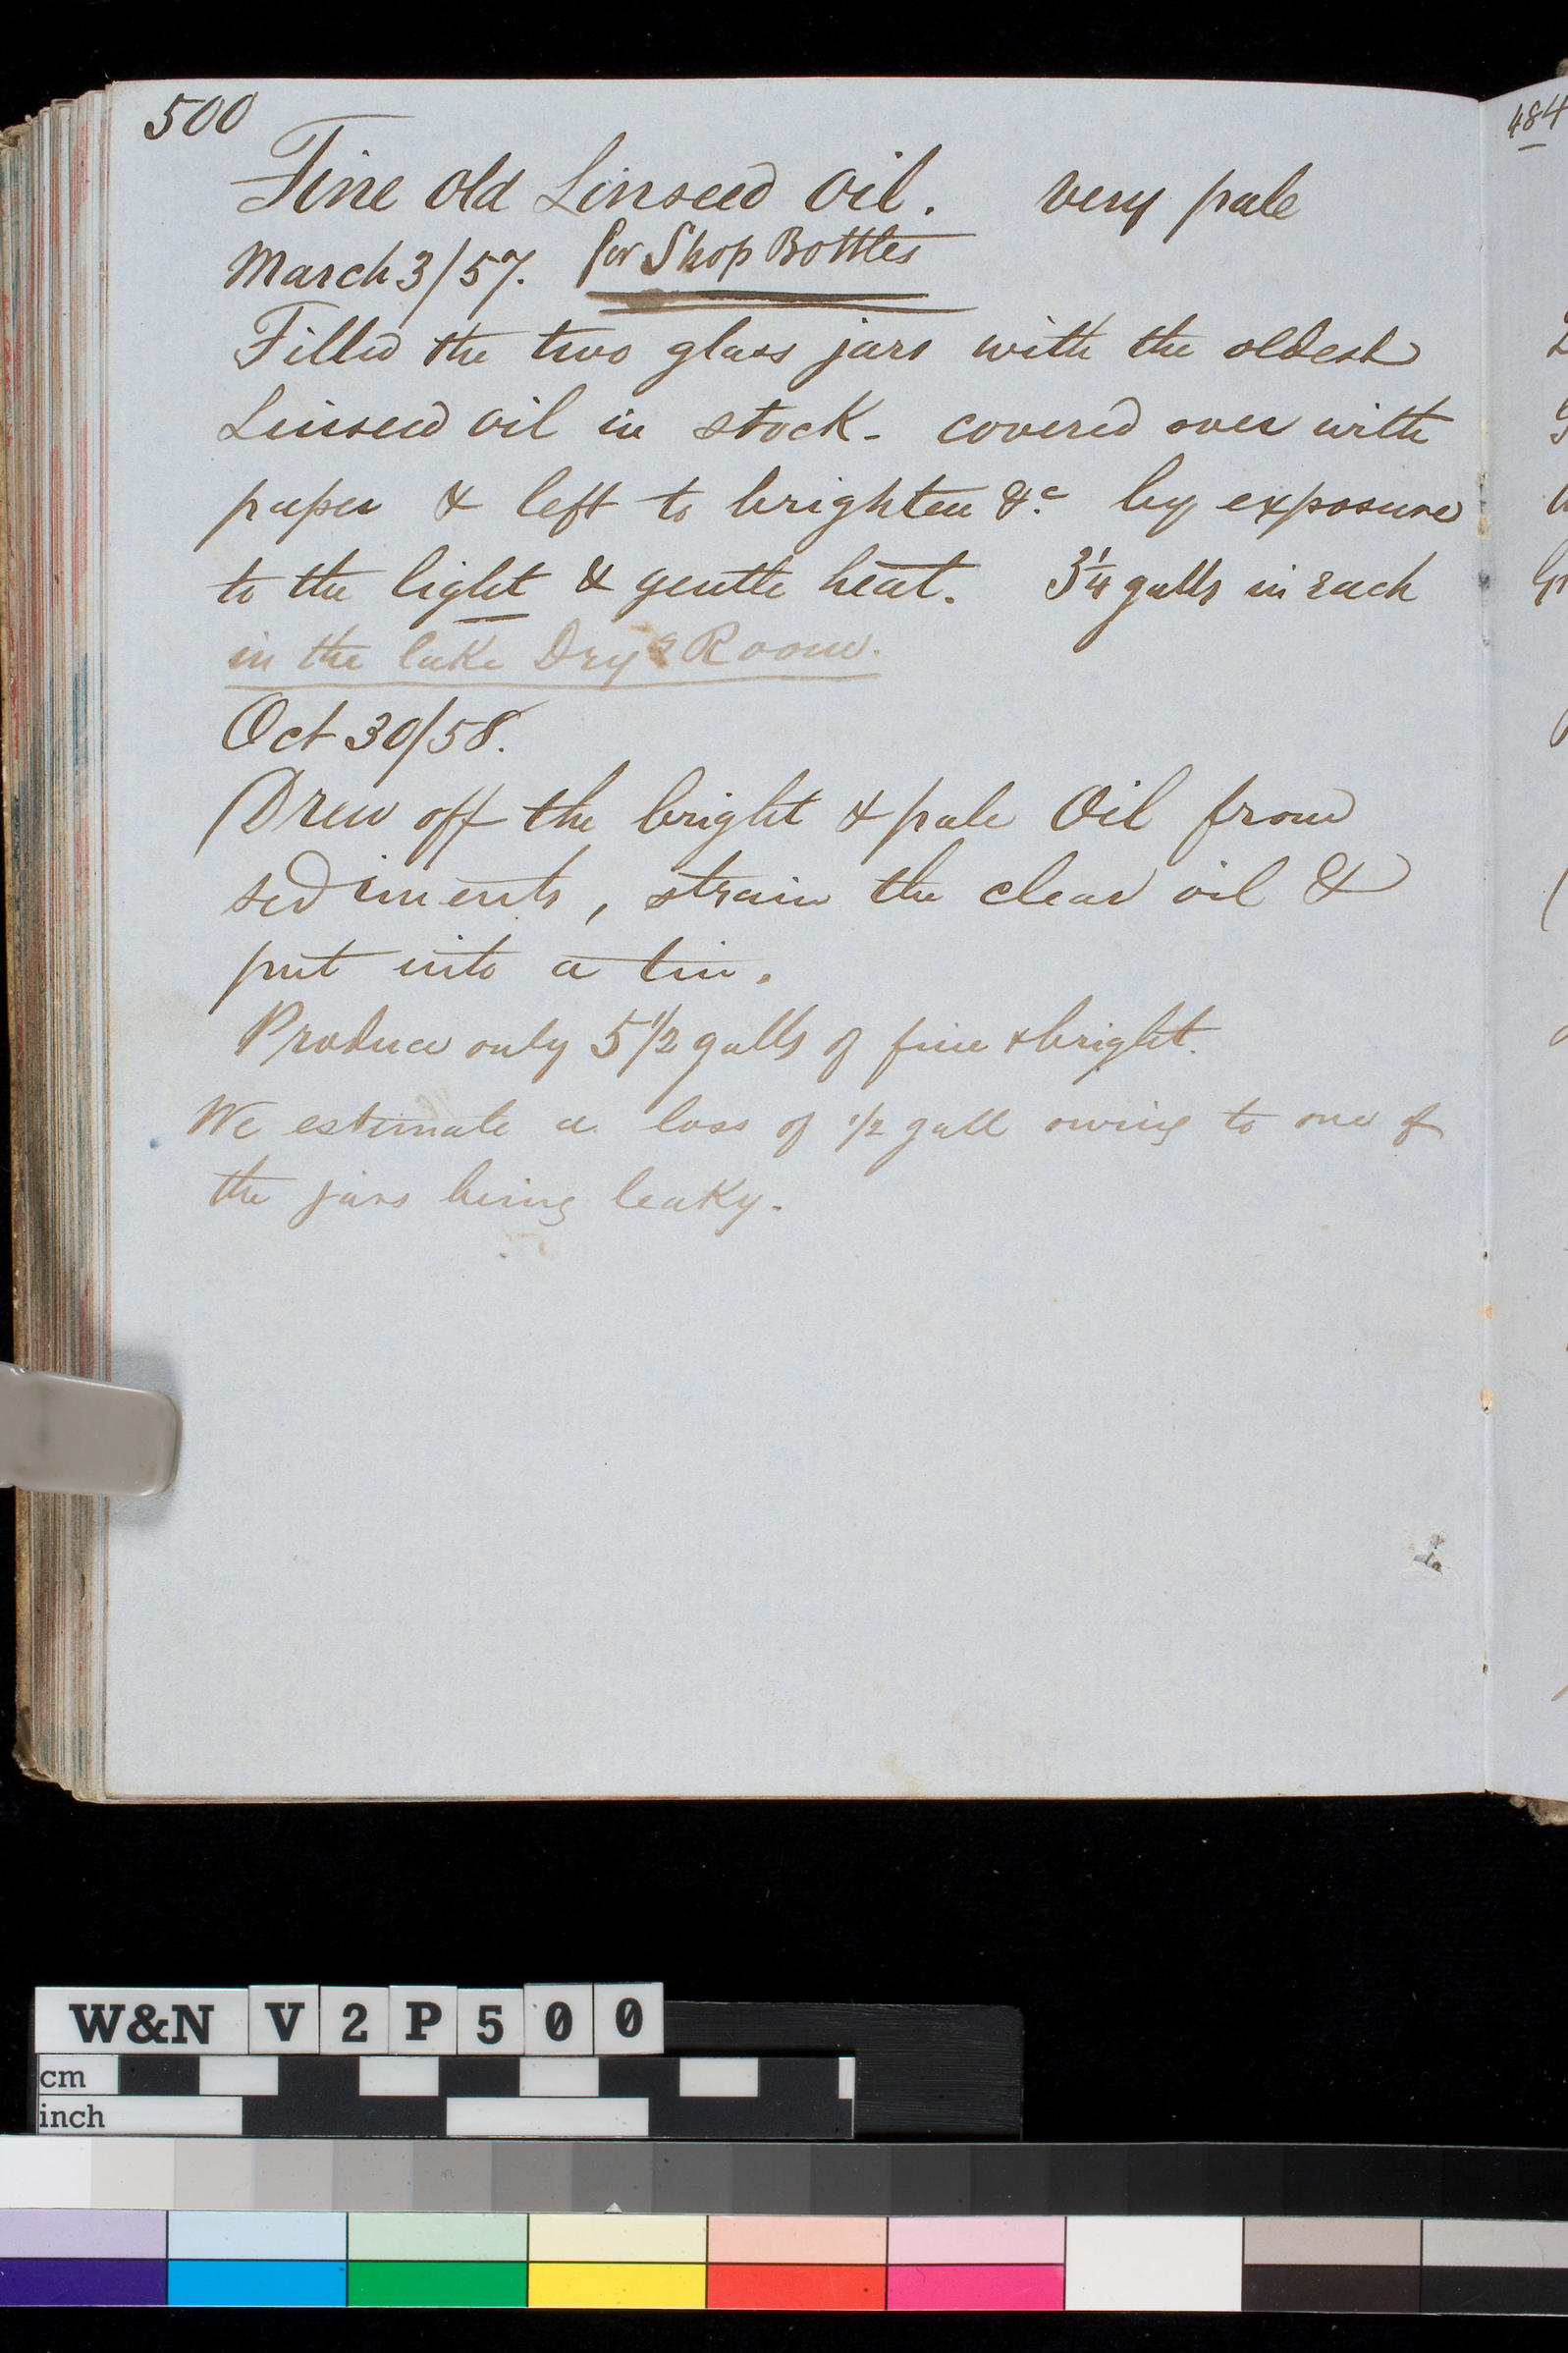 500
Fine old Linseed Oil. very pale
March 3/57. for Shop Bottles
Filled the two glass jars with the oldest
Linseed oil in stock - covered over with
paper & left to brighten &c by exposure
to the light & gentle heat. 3 1/4 galls in each
in the lake Dryg Room.
Oct 30/58.
Drew off the bright & pale Oil from
sediments, strain the clear oil &
put into a tin.
Produce only 5 1/2 galls of fine & bright.
We estimate a loss of 1/2 gall owing to one of
the jars being leaky.
484
W&N V2P500
cm
inch